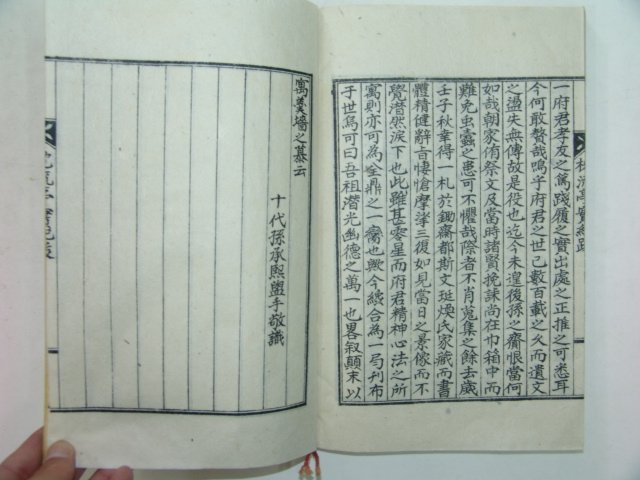 一府君孝友之篤踐履之實出處之正推之可悉耳
今何敢贅哉嗚乎府君之世已數百載之久而遺文
之盪失無傳故是役也迄今未遑後孫之齎恨當何
如哉朝家侑祭文及當時諸賢挽誄尚在巾箱中而
難免虫蠹之患可不懼哉際者不肖蒐集之餘去歲
壬子秋幸得一札於鋤齋都斯文珽煥氏家藏而書
體精健辭旨悽愴摩挲三復如見當日之景傢而不
覺潸然淚下也此雖甚零星而府君精神心法之所
寓則亦可為全鼎之一臠也歟今續合為一局刊布
于世烏可曰吾祖潛光幽德之萬一也畧叙顛末以
寓羹墻之慕云
十代孫承熙盥手敬識